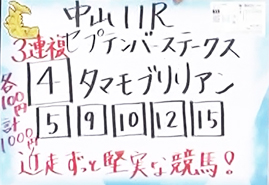 中山11R
3連複 セプテンバーステークス
各100円 計1000円
4 タマモブリリアン
5 9 10 12 15
近走ずっと堅実な競馬!